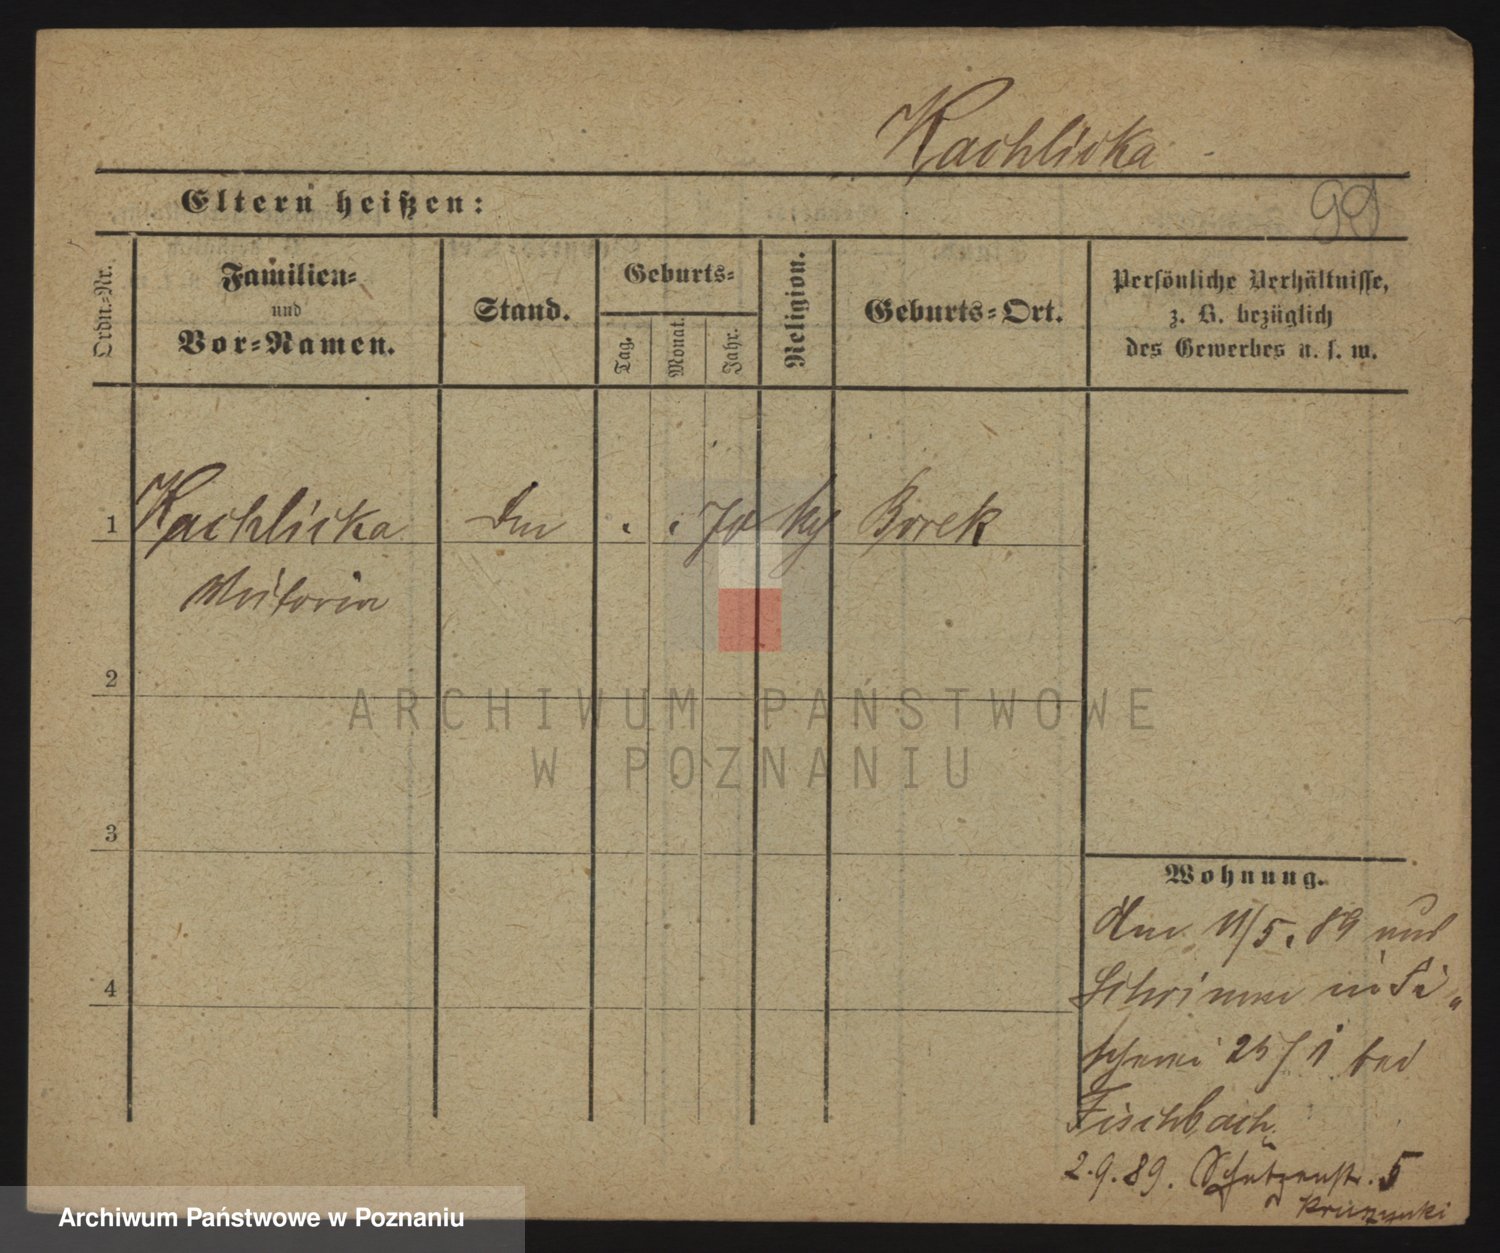 Kachlicka
99
Eltern heißen:
Ordn.-Nr.
Familien-
und
Vor-Namen.
Stand.
Geburts-
Tag.
Monat.
Jahr.
Religion.
Geburts-Ort.
Persönliche Verhältnisse,
z. B. bezüglich
des Gewerbes u. s. w.
1
Kachlicka
70
Borek
Victoria
2
3
4
Wohnung.
11/5. 89
Schrimm in Fi-
scherei 25/1 bei
Fischbach
2.9.89. Schützenstr. 5
ARCHIWUM PAŃSTWOWE
W POZNANIU
Archiwum Państwowe w Poznaniu